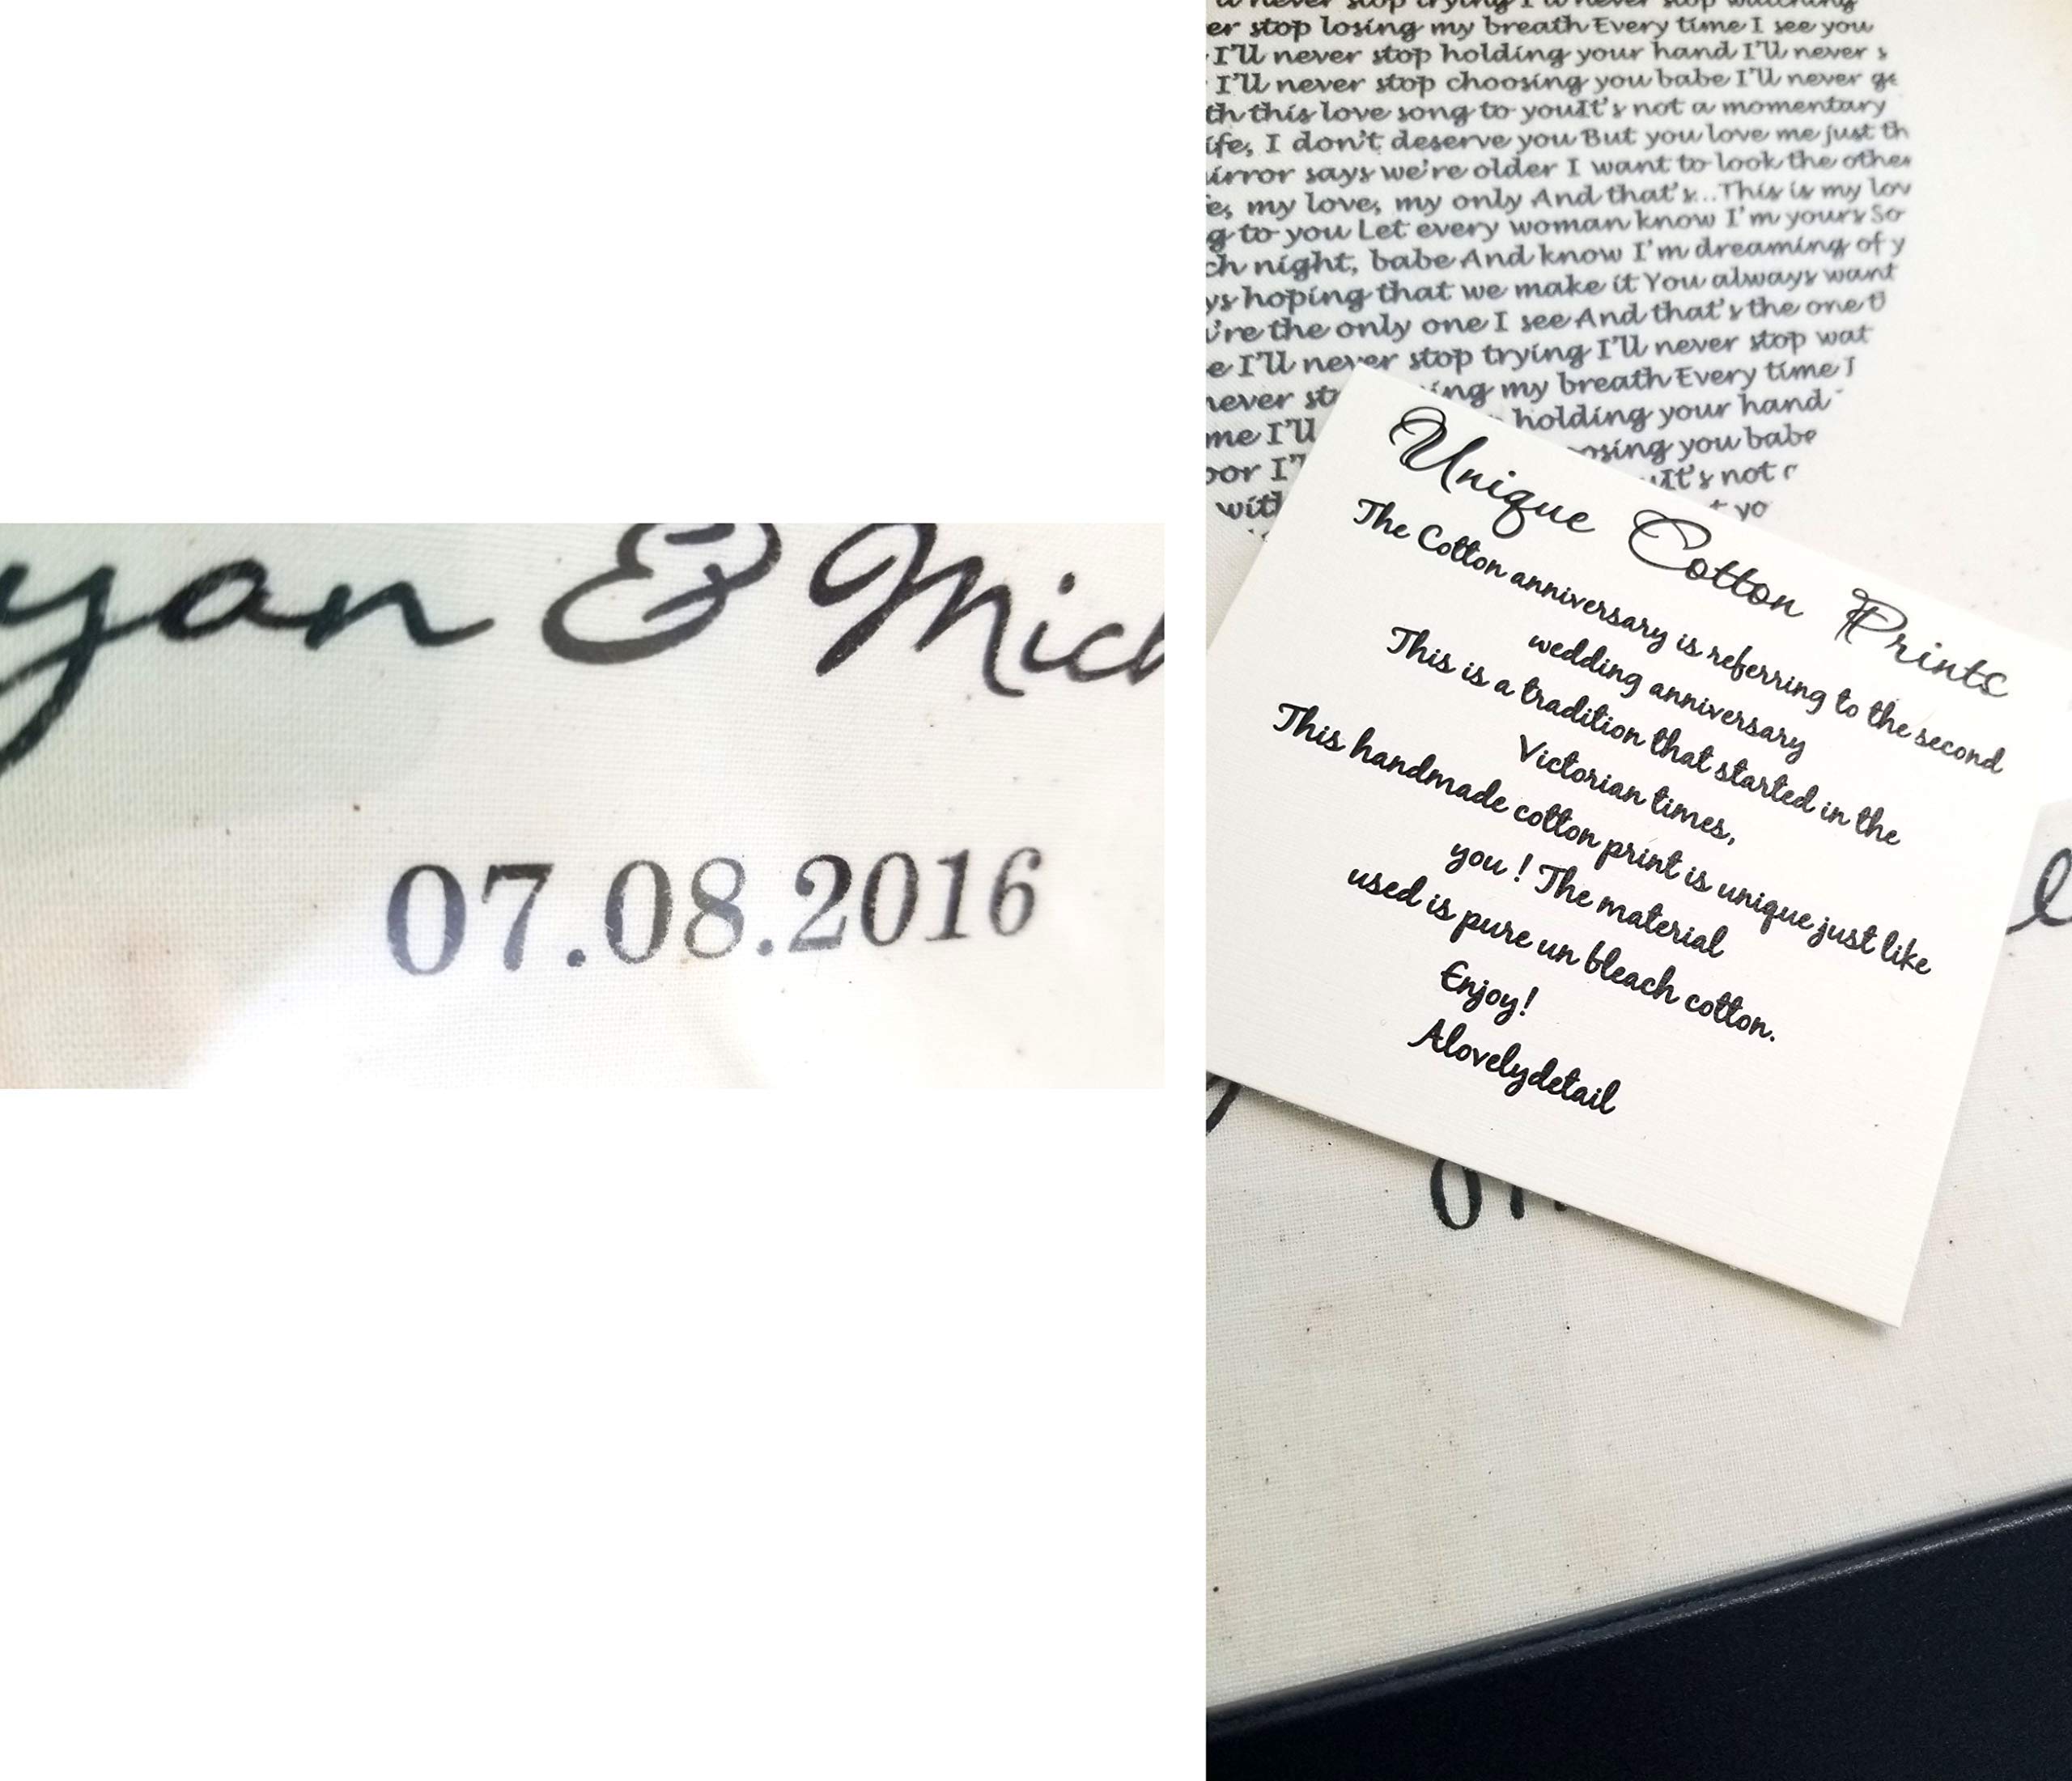 yan & Mich
07.08.2016
er stop losing my breath Every time I see you
I'll never stop holding your hand I'll never s
I'll never stop choosing you babe I'll never ge
th this love song to youIt's not a momentary
ife, I don't deserve you But you love me just th
irror says we're older I want to look the other
e, my love, my only And that's...This is my lov
g to you Let every woman know I'm yours So
ch night, babe And know I'm dreaming of y
ys hoping that we make it You always want
're the only one I see And that's the one t
e I'll never stop trying I'll never stop wat
never st ing my breath Every time I
me I'll holding your hand
oor I' osing you babe
It's not
with yo
Unique Cotton Prints
The Cotton anniversary is referring to the second
wedding anniversary
This is a tradition that started in the
Victorian times,
This handmade cotton print is unique just like
you ! The material
used is pure un bleach cotton.
Enjoy!
Alovelydetail
07